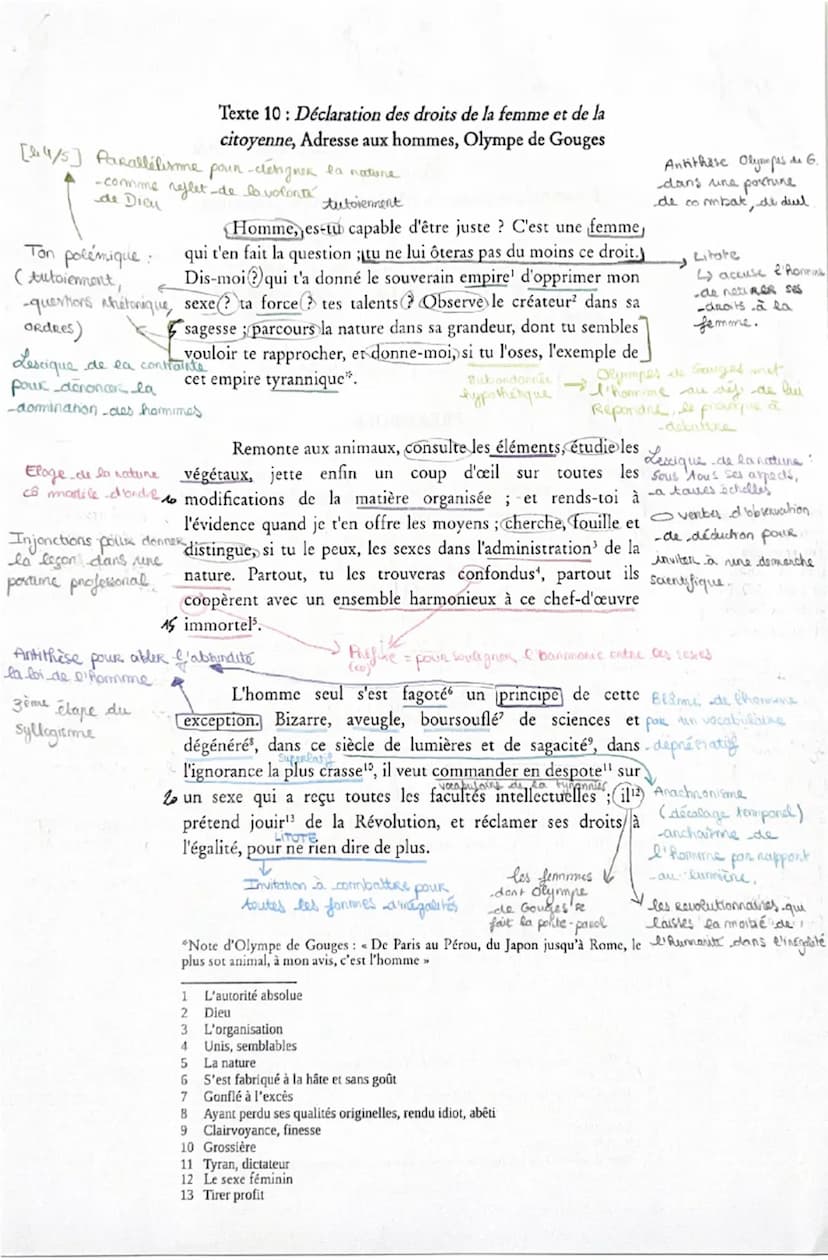 Texte 10 : Déclaration des droits de la femme et de la
citoyenne, Adresse aux hommes, Olympe de Gouges
[l.4/5] Parallélisme pour désigner la nature
comme reflet de la volonté
de Dieu
tutoiement
Antithèse Olympe de G.
dans une posture
de combat, de duel.
Ton polémique :
(tutoiement,
questions rhétorique,
ordres)
Lexique de la contrainte
pour dénoncer la
domination des hommes
Homme, es-tu capable d'être juste ? C'est une femme
qui t'en fait la question ; tu ne lui ôteras pas du moins ce droit.
Dis-moi ? qui t'a donné le souverain empire¹ d'opprimer mon
sexe ? ta force ? tes talents ? Observe le créateur² dans sa
5 sagesse ; parcours la nature dans sa grandeur, dont tu sembles
vouloir te rapprocher, et donne-moi, si tu l'oses, l'exemple de
cet empire tyrannique*.
Litote
↳ accuse l'homme
de retirer ses
droits à la
femme.
Subordonnée
hypothétique
→ Olympes de Gouges met
l'homme au défi de lui
répondre, le provoque à
débattre
Eloge de la nature
cô modèle d'ordre
Injonctions pour donner
la leçon dans une
posture professoral.
Remonte aux animaux, consulte les éléments, étudie les
végétaux, jette enfin un coup d'œil sur toutes les
10 modifications de la matière organisée ; et rends-toi à
l'évidence quand je t'en offre les moyens ; cherche, fouille et
distingue, si tu le peux, les sexes dans l'administration³ de la
nature. Partout, tu les trouveras confondus⁴, partout ils
coopèrent avec un ensemble harmonieux à ce chef-d'œuvre
15 immortel⁵.
Lexique de la nature :
sous tous ses aspects,
à toutes échelles
verbes d'observation
de déduction pour
inviter à une démarche
scientifique.
Préfixe = pour souligner l'harmonie entre les sexes
(co)
Antithèse pour l'absurdité
la loi de l'homme
3ème étape du
syllogisme
L'homme seul s'est fagoté⁶ un principe de cette
exception. Bizarre, aveugle, boursouflé⁷ de sciences et
dégénéré⁸, dans ce siècle de lumières et de sagacité⁹, dans
superlatif
l'ignorance la plus crasse¹⁰, il veut commander en despote¹¹ sur
vocabulaire de la tyrannie
20 un sexe qui a reçu toutes les facultés intellectuelles ; il¹²
prétend jouir¹³ de la Révolution, et réclamer ses droits à
LITOTE
l'égalité, pour ne rien dire de plus.
Blâme de l'homme
par un vocabulaire
dépréciatif
Anachronisme
(décalage temporel)
de
l'homme par rapport
au lumière.
Invitation à combattre pour
toutes les formes d'inégalités
les femmes
dont Olympe
de Gouges se
fait la porte-parol
les révolutionnaires qui
laisses la moitié de
l'Humanité dans l'inégalité
*Note d'Olympe de Gouges : « De Paris au Pérou, du Japon jusqu'à Rome, le
plus sot animal, à mon avis, c'est l'homme »
1 L'autorité absolue
2 Dieu
3 L'organisation
4 Unis, semblables
5 La nature
6 S'est fabriqué à la hâte et sans goût
7 Gonflé à l'excès
8 Ayant perdu ses qualités originelles, rendu idiot, abêti
9 Clairvoyance, finesse
10 Grossière
11 Tyran, dictateur
12 Le sexe féminin
13 Tirer profit